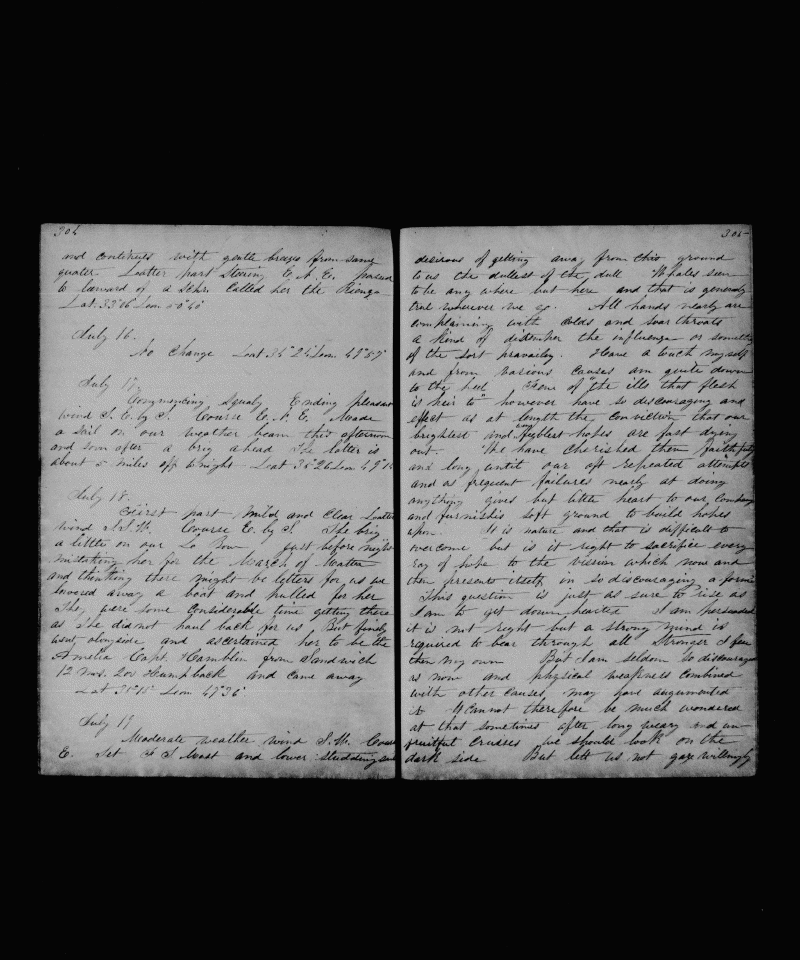 304
and continues with gentle breezes from same
quater. Lautter part Stearing E. N. E. passed
to larward of a Schr. Called her the
Lat. 33°16' Lon 50°40'
July 16.
No Change Laat 34°24' Lon. 49°57'
July 17,
Commencing squaly Ending pleasant
wind S. E. by S. Course E. N. E. Made
a sail on our weather beam this afternoon
and soon after a brig ahead The latter is
about 5 miles off to night Laat 35°26 Lon 49°
July 18.
First part Mild and Clear Laatter
wind S.S.W. Course E. by S. The brig
a little on our Le Bow just before night
mistaking her for the March of Mattee
and thinking there might be letters for us we
lowered away a boat and pulled for her
They were some considerable time getting there
as she did not haul back for us But finely
went alongside and ascertained her to be the
Amelia Capt. Hamblin from Sandwich
12 mos. 200 Humpback and came away
Lat 35°15' Lon 47°36'
July 19
Moderate weather wind S.W. Course
E. Set Mast and lower studding sail
305
desireous of getting away from this ground
to us the dullest of the dull Whales seem
to be any where but here and that is generaly
true wherever we go. All hands nearly are
complaining with colds and soar throats
a kind of distemper the influenza or something
of the sort prevailing. Have a tuch myself
and from various causes am quite down
to the heel Some of "the ills that flesh
is heir to" however have so discouraging and
effect as at length the conviction that our
brightest and feeblest hopes are fast dying
out. We have cherished them faithfuly
and long until our oft repeated attempts
and as frequent failures nearly at doing
anything gives but little heart to our company
and furnishis soft ground to build hopes
upon. It is nature and that is difficult to
overcome but is it right to sacrifice every
ray of hope to the vission which now and
then presents itself in so discouraging a form
This question is just as sure to rise as
I am to get down hearted I am persuaded
it is not right but a strong mind is
required to bear through all Stronger I fear
then my own But I am seldom so discouraged
as now and physical weakness combined
with other causes may have augumented
it It cannot therefore be much wondered
at that sometimes after long weary and un-
fruitful Cruises we should look on the
dark side But lett us not gaze willingly